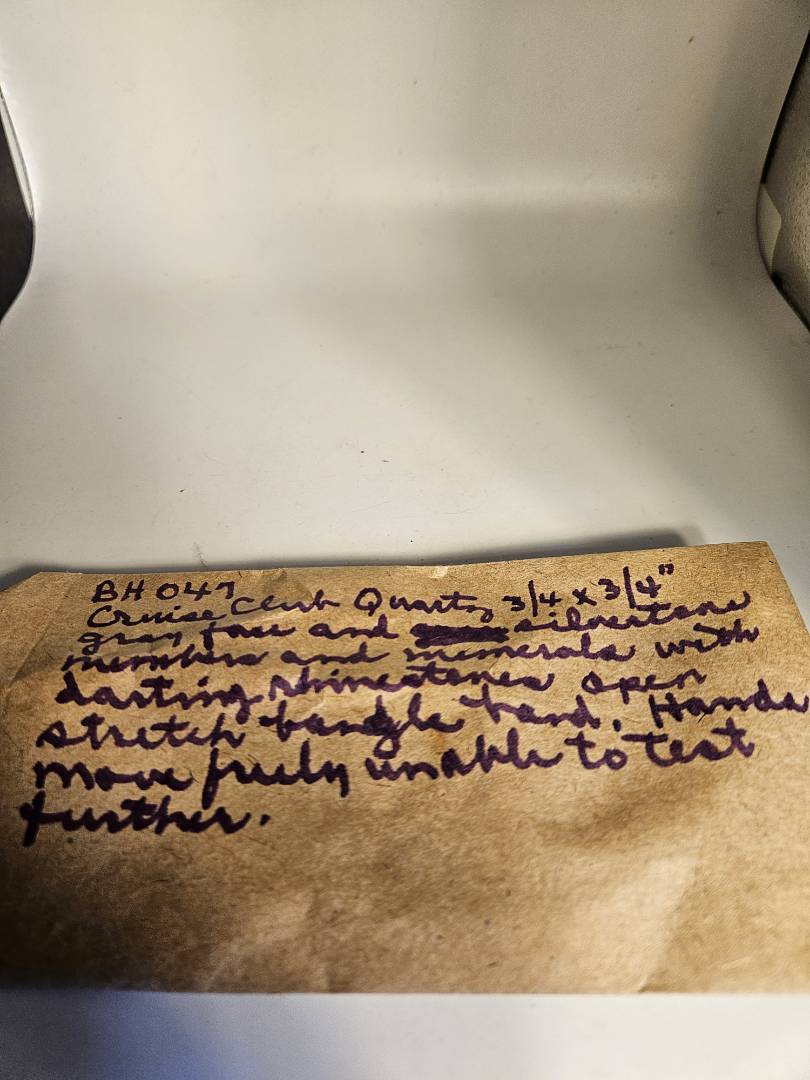 BH 047
Cruise Club Quartz 3/4 x 3/4"
gray face and silvertone
members and numerals with
darting rhinestones open
stretch bangle band. Hands
move freely unable to test
further.